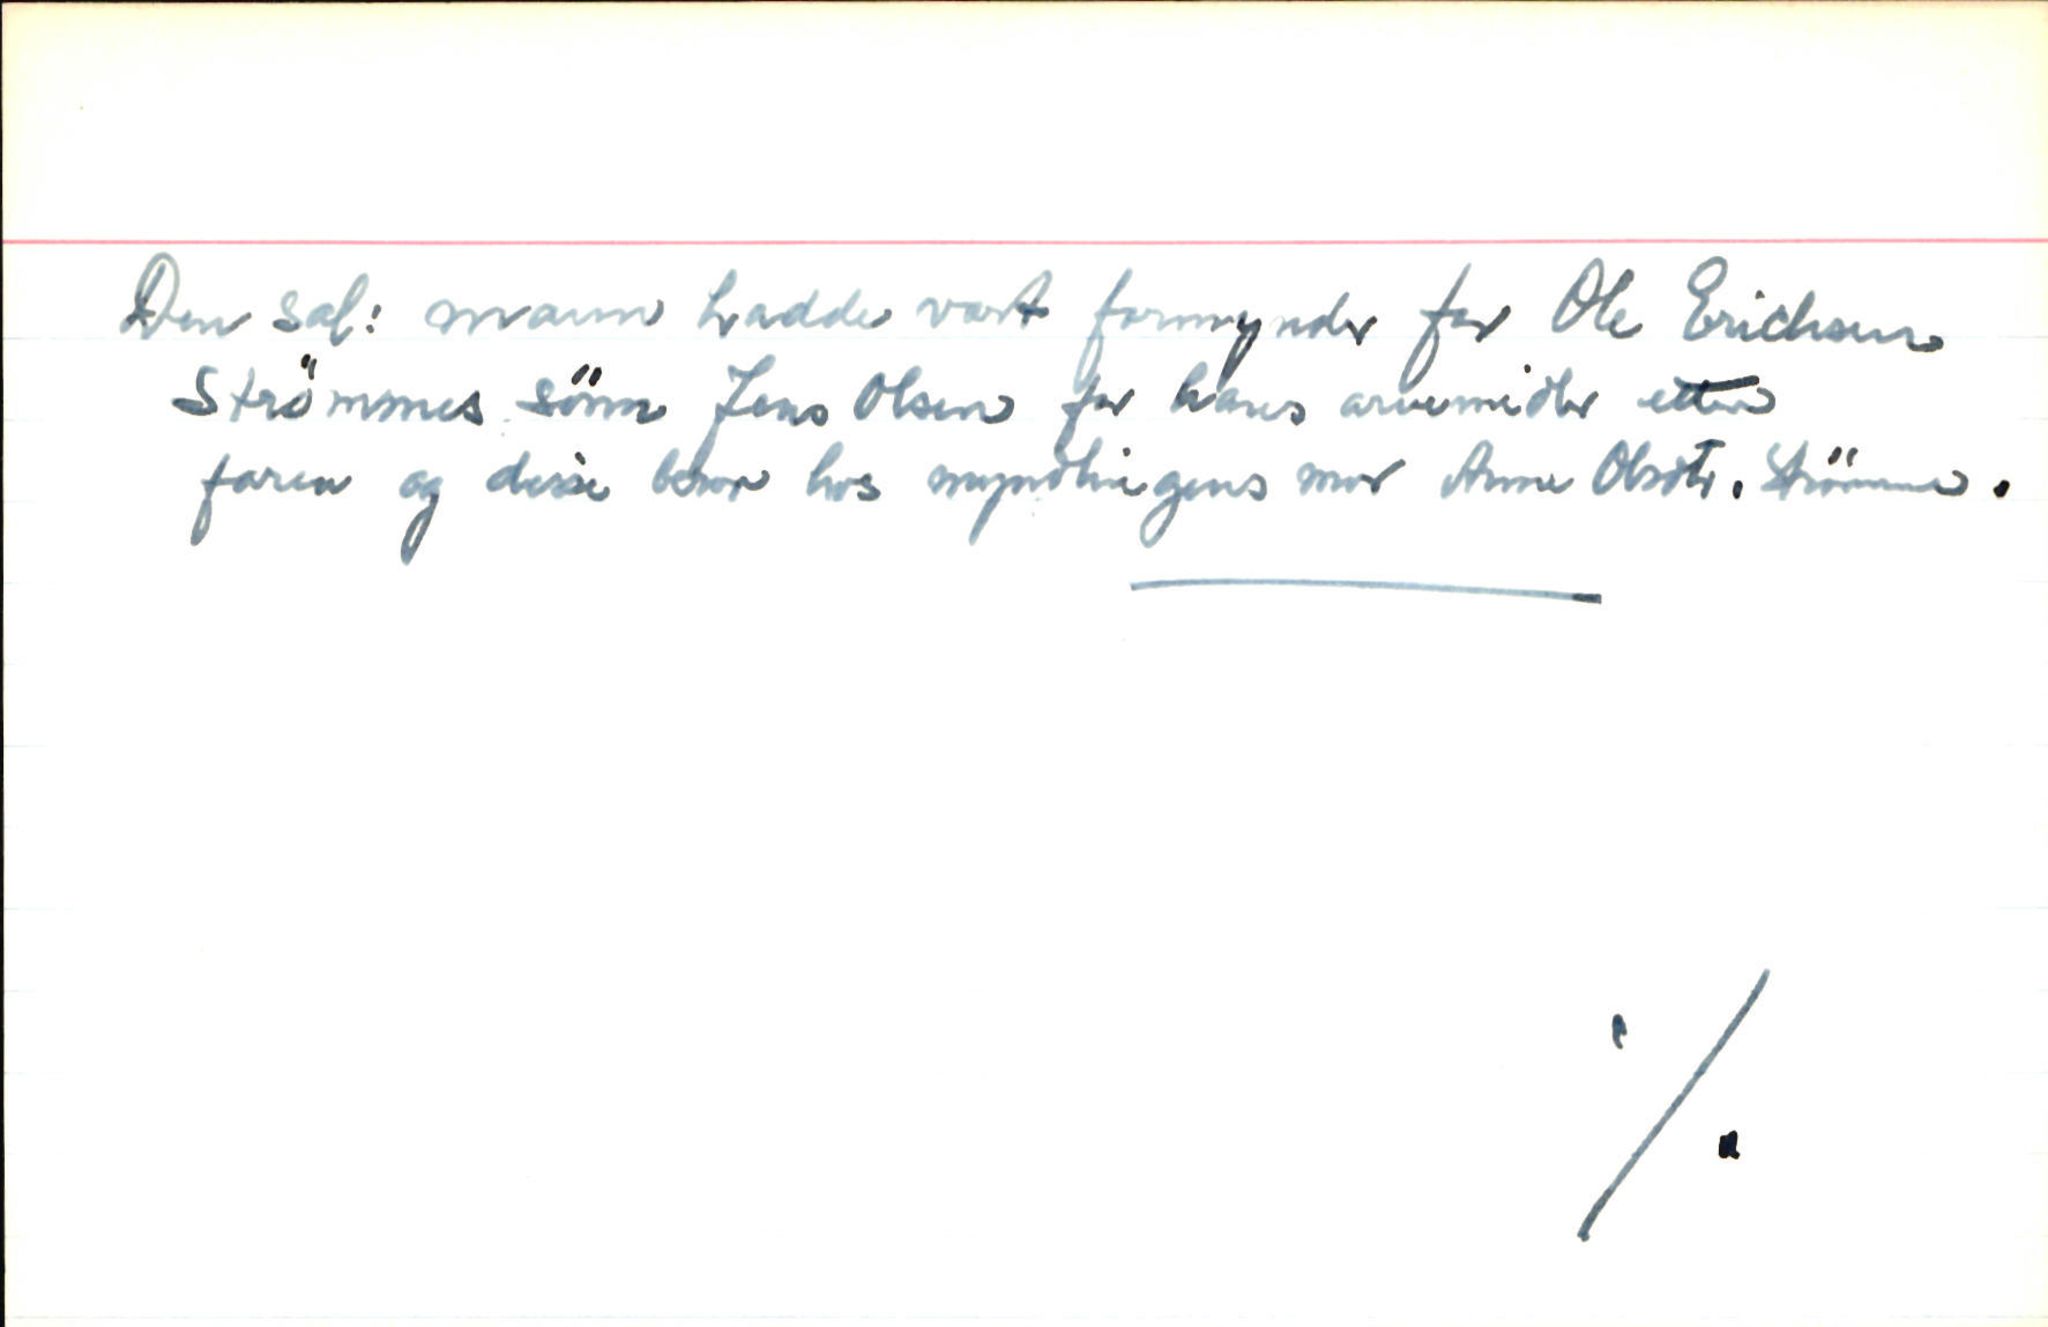 Den sal: mann hadde vært formynder for Ole Erichsen
Strömmes sönn Jens Olsen for hans arvemidler etter
faren og disse beror hos myndlingens mor Anne Olsdtr. Strömme.